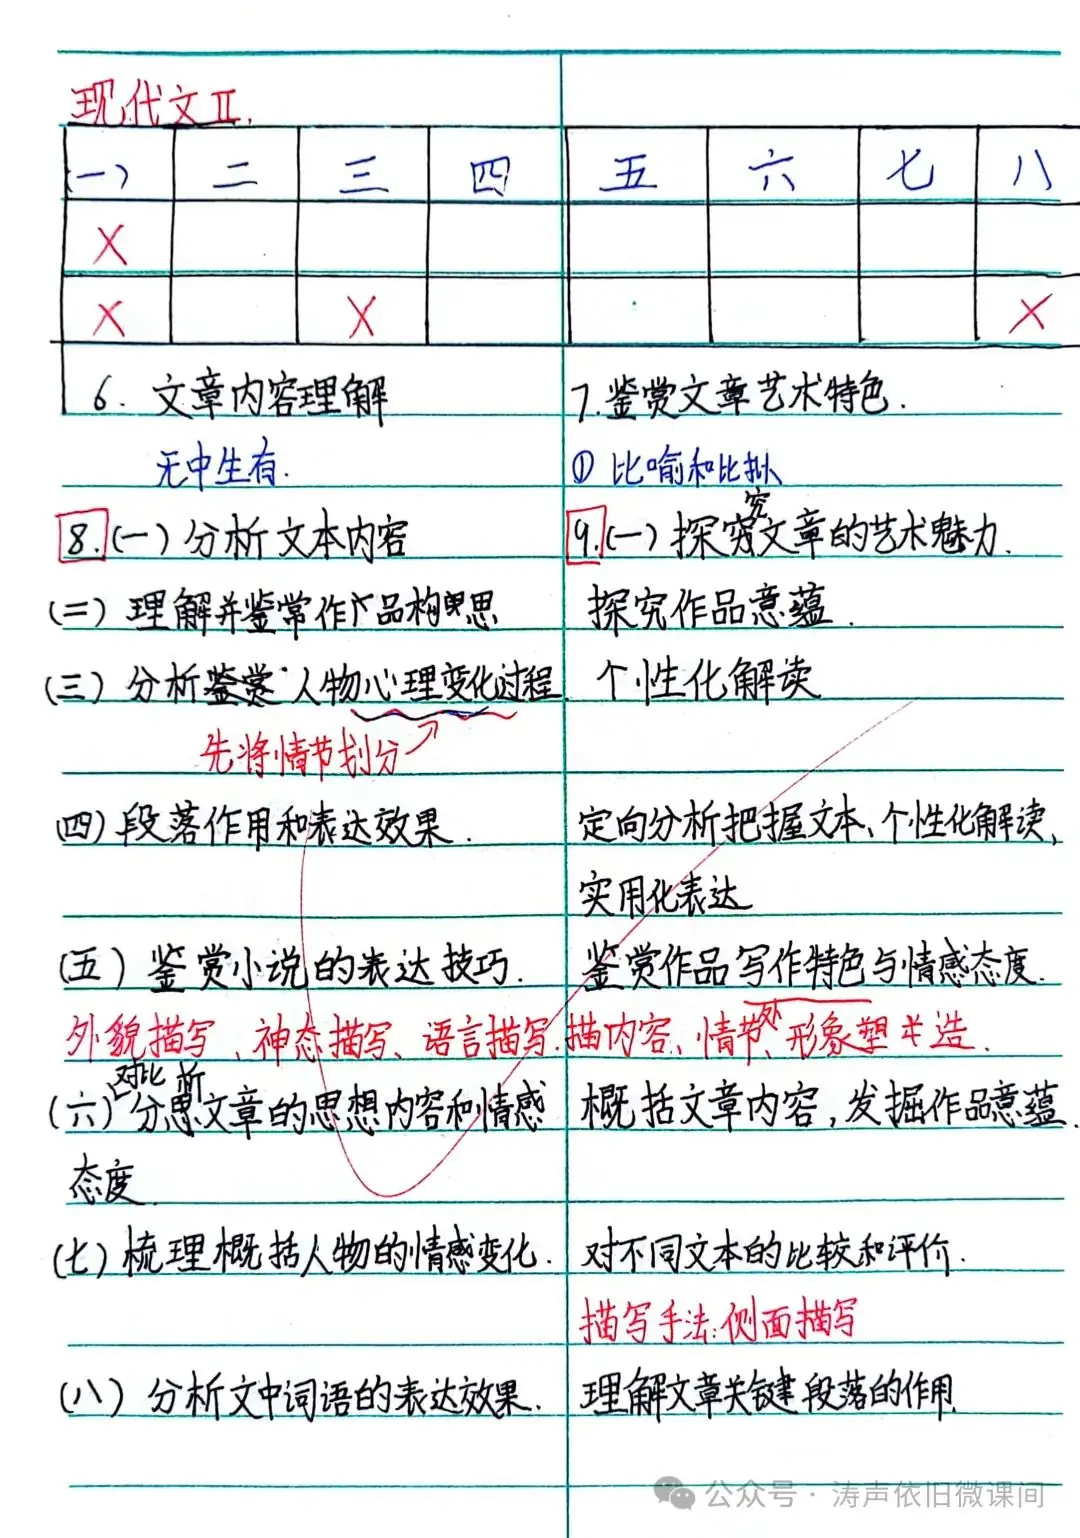 现代文Ⅱ.
(一) 二 三 四 五 六 七 八
X
X X X
6. 文章内容理解
无中生有.
7.鉴赏文章艺术特色.
① 比喻和比拟
8.(一)分析文本内容
(二)理解并鉴常作品构思
(三)分析鉴赏人物心理变化过程.
先将情节划分
(四)段落作用和表达效果.
(五)鉴赏小说的表达技巧.
外貌描写、神态描写、语言描写.
对比 析
(六)分思文章的思想内容和情感
态度.
(七)梳理概括人物的情感变化.
(八)分析文中词语的表达效果.
究
9.(一)探穷文章的艺术魅力.
探究作品意蕴.
个性化解读
定向分析把握文本、个性化解读,
实用化表达
鉴赏作品写作特色与情感态度.
描内容、情节、形象塑造.
概括文章内容,发掘作品意蕴.
对不同文本的比较和评价.
描写手法:侧面描写
理解文章关键段落的作用.
公众号·涛声依旧微课间